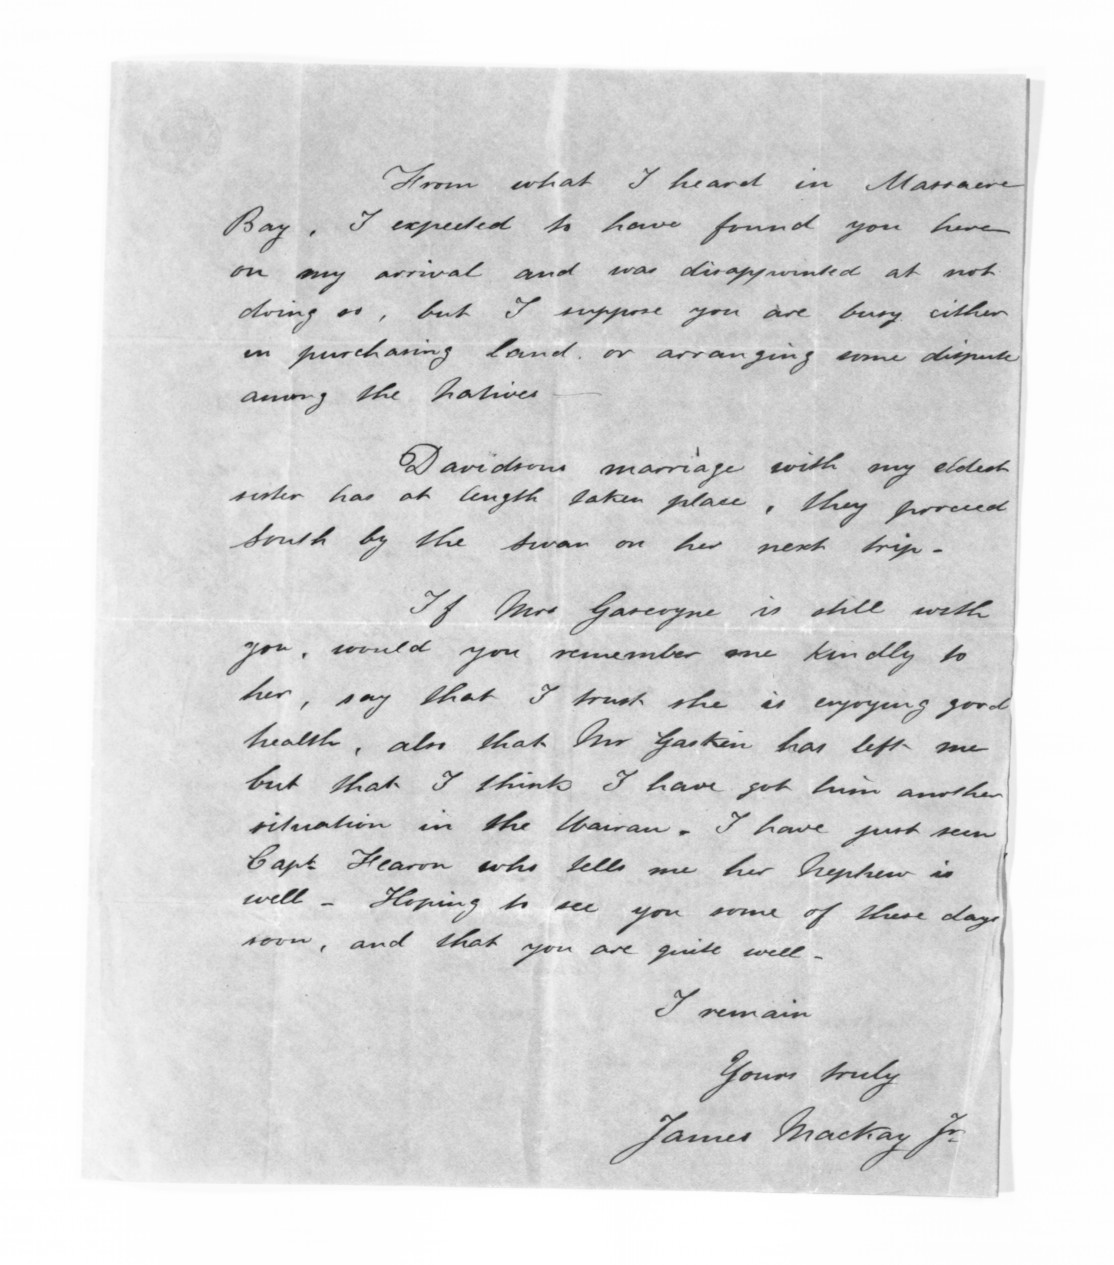 From what I heard in Massacre
Bay, I expected to have found you here
on my arrival and was disappointed at not
doing so, but I suppose you are busy either
in purchasing land. or arranging some dispute
among the Natives —
Davidsons marriage with my eldest
sister has at length taken place, they proceed
South by the Swan on her next trip -
If Mrs Gascoyne is still with
you, would you remember me kindly to
her, say that I trust she is enjoying good
health, also that Mr Gaskin has left me
but that I think I have got him another
situation in the Wairau. I have just seen
Capt Fearon who tells me her Nephew is
well - Hoping to see you some of these days
soon, and that you are quite well -
I remain
Yours truly
James Mackay Jr